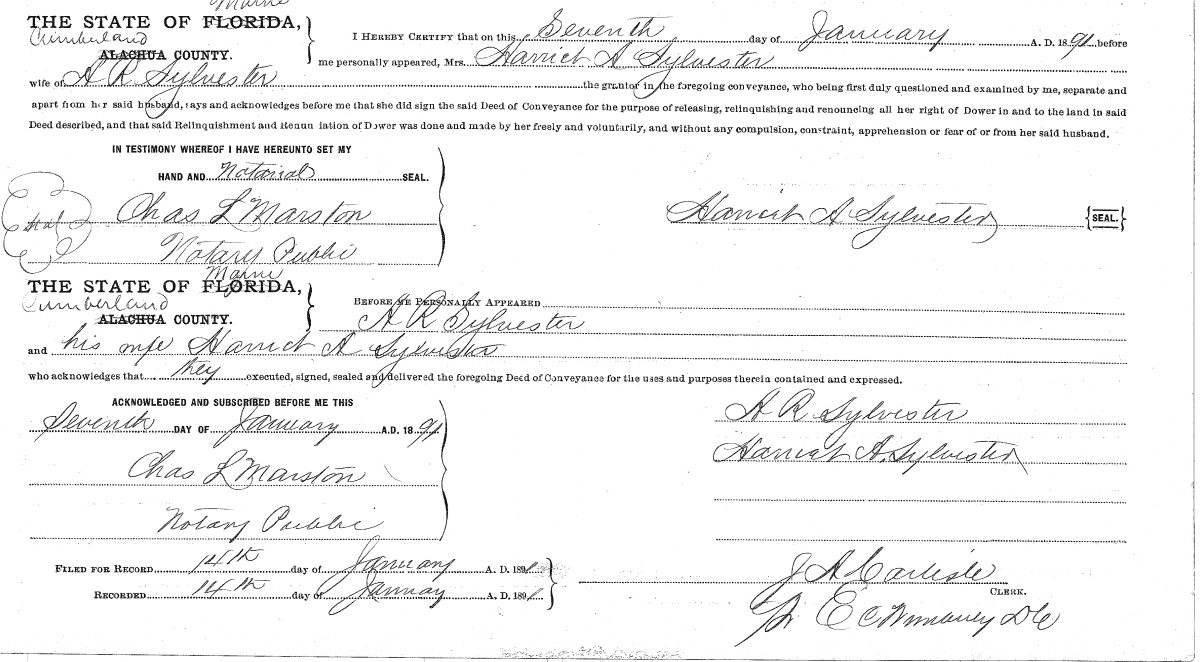 Maine
THE STATE OF FLORIDA,
Cumberland
ALACHUA COUNTY.
I HEREBY CERTIFY that on this Seventh day of January A. D. 1891 before
me personally appeared, Mrs. Harriet A Sylvester
wife of A R Sylvester the grantor in the foregoing conveyance, who being first duly questioned and examined by me, separate and
apart from her said husband, says and acknowledges before me that she did sign the said Deed of Conveyance for the purpose of releasing, relinquishing and renouncing all her right of Dower in and to the land in said
Deed described, and that said Relinquishment and Renun iation of Dower was done and made by her freely and voluntarily, and without any compulsion, constraint, apprehension or fear of or from her said husband.
IN TESTIMONY WHEREOF I HAVE HEREUNTO SET MY
HAND AND Notarial SEAL.
Seal
Chas L Marston
Harriet A Sylvester {SEAL.}
Notary Public
Maine
THE STATE OF FLORIDA,
Cumberland
ALACHUA COUNTY.
BEFORE ME PERSONALLY APPEARED
A R Sylvester
and his wife Harriet A Sylvester
who acknowledges that they executed, signed, sealed and delivered the foregoing Deed of Conveyance for the uses and purposes therein contained and expressed.
ACKNOWLEDGED AND SUBSCRIBED BEFORE ME THIS
Seventh DAY OF January A.D. 1891
A R Sylvester
Harriet A. Sylvester
Chas L Marston
Notary Public
FILED FOR RECORD 14th day of January A. D. 1891
RECORDED 14th day of January A. D. 1891
J A Carlisle
CLERK.
E C DC